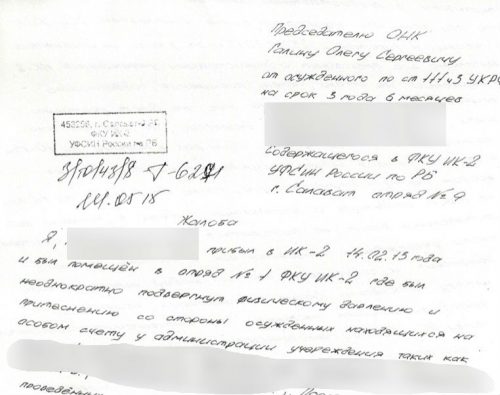 Председателю ОНК
Галину Олегу Сергеевичу
от осужденного по ст 111 ч 3 УКРФ
на срок 3 года 6 месяцев
содержащегося в ФКУ ИК-2
УФСИН России по РБ
г. Салават отряд № 9
453256, г. Салават-
ФКУ ИК-2
УФСИН России по РБ
14.05.15
Жалоба
Я, прибыл в ИК-2 14.02.13 года
и был помещён в отряд № 1 ФКУ ИК-2 где был
неоднократно подвергнут физическому давлению и
притеснению со стороны осужденных находящихся на
особом счету у администрации учреждения таких как